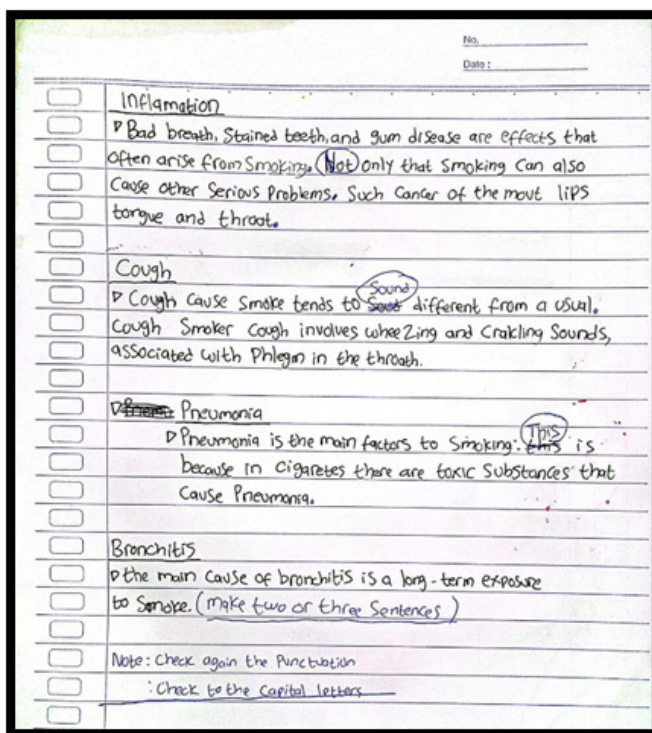 No.
Date:
Inflamation
▷ Bad breath, Stained teeth, and gum disease are effects that
often arise from Smoking. Not only that Smoking can also
Cause other Serious Problems. Such Cancer of the mout lips
tongue and throat.
Cough
Sound
▷ Cough Cause Smoke tends to different from a usual.
Cough Smoker Cough involves wheezing and Crakling Sounds,
associated with Phlegm in the throath.
▷ Pneumonia
This
▷ Pneumonia is the main factors to Smoking. this is
because in Cigaretes there are toxic Substances that
Cause Pneumonia.
Bronchitis
▷ the main cause of bronchitis is a long-term exposure
to Smoke. (make two or three Sentences)
Note: Check again the Punctuation
: Check to the Capital letters